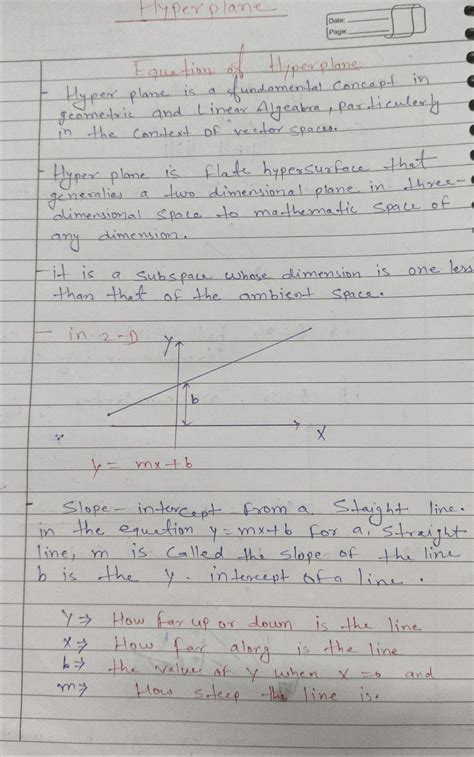 Hyperplane
Date:
Page:
Equation of Hyperplane
- Hyper plane is a fundamental concept in
geometric and Linear Algeabra, particulerly
in the context of vector spaces.
- Hyper plane is flate hypersurface that
generalies a two dimensional plane in three-
dimensional space to mathematic space of
any dimension.
- it is a subspace whose dimension is one less
than that of the ambient space.
- in 2-D
Y
b
X
y = mx+b
- Slope - intercept from a Staight line.
in the equation y=mx+b for a, straight
line, m is called the slope of the line
b is the y - intercept of a line.
Y ⇒ How far up or down is the line
x ⇒ How far along is the line
b ⇒ the value of Y when X =0 and
m ⇒ How steep the line is.